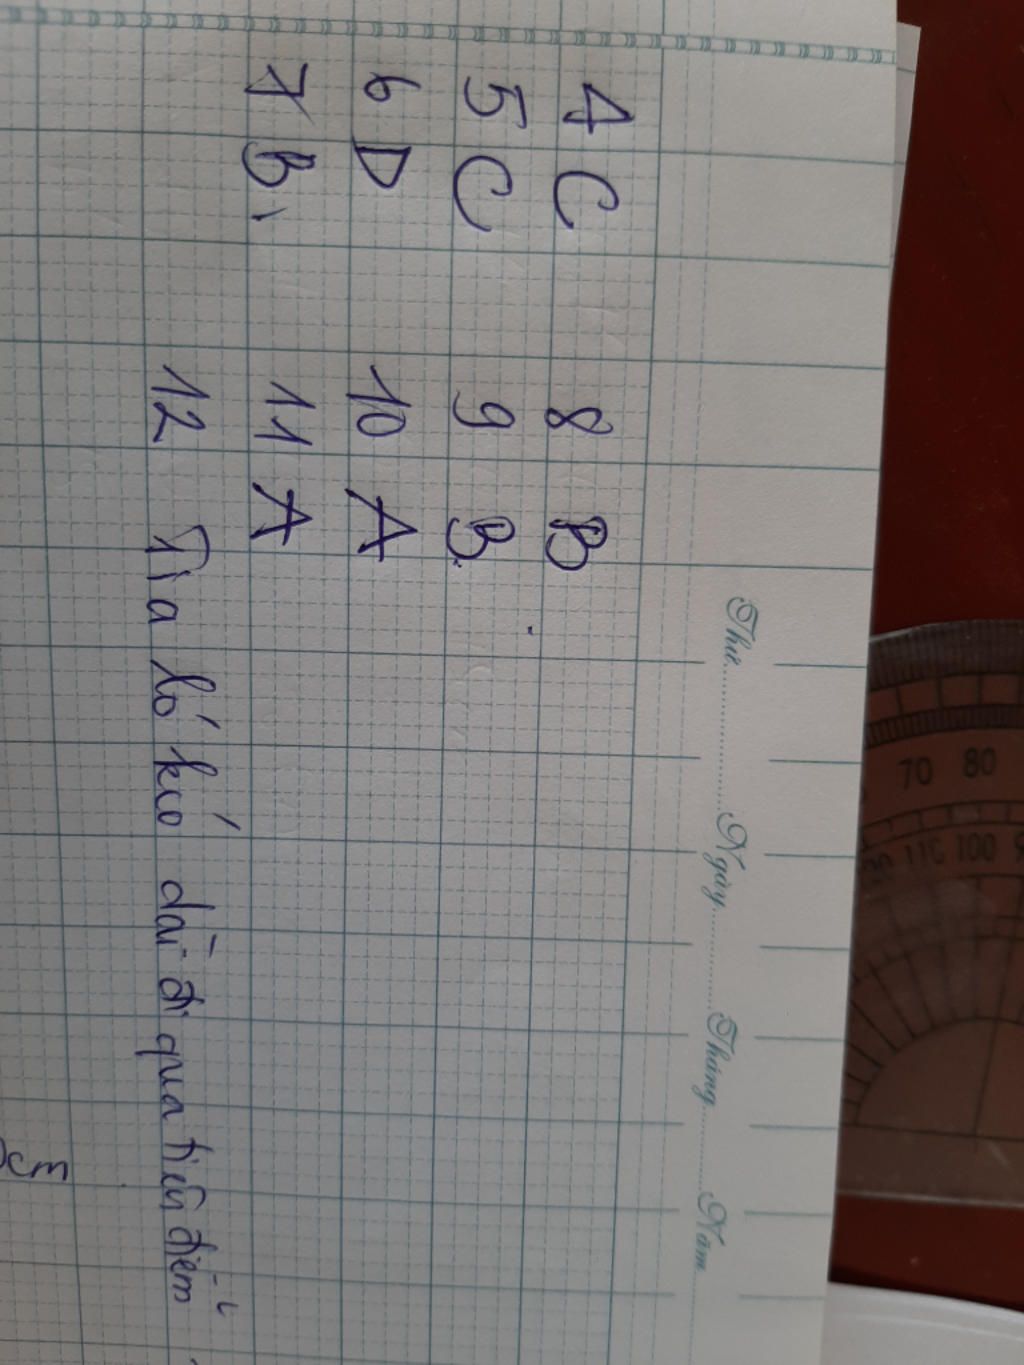 Thứ Ngày Tháng Năm
4 C 8 B
5 C 9 B
6 D 10 A
7 B 11 A
12 Tia ló kéo dài đi qua tiêu điểm
cm
70 80
110 100